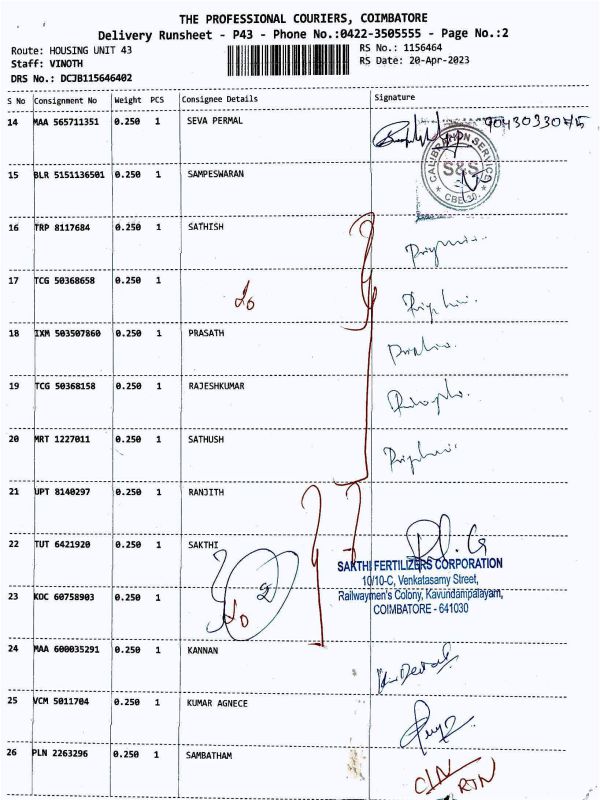 THE PROFESSIONAL COURIERS, COIMBATORE
Delivery Runsheet - P43 - Phone No.:0422-3505555 - Page No.:2
Route: HOUSING UNIT 43
RS No.: 1156464
Staff: VINOTH
RS Date: 20-Apr-2023
DRS No.: DCJB115646402
S No Consignment No Weight PCS Consignee Details Signature
14 MAA 565711351 0.250 1 SEVA PERMAL
CALIBRATION SERVICE
S&S
CBE-30.
15 BLR 5151136501 0.250 1 SAMPESWARAN
16 TRP 8117684 0.250 1 SATHISH
17 TCG 50368658 0.250 1
18 IXM 503507860 0.250 1 PRASATH
19 TCG 50368158 0.250 1 RAJESHKUMAR
20 MRT 1227011 0.250 1 SATHUSH
21 UPT 8140297 0.250 1 RANJITH
22 TUT 6421920 0.250 1 SAKTHI
SAKTHI FERTILIZERS CORPORATION
10/10-C, Venkatasamy Street,
Railwaymen's Colony, Kavundampalayam,
COIMBATORE - 641030
23 KOC 60758903 0.250 1
2
24 MAA 600035291 0.250 1 KANNAN
25 VCM 5011704 0.250 1 KUMAR AGNECE
26 PLN 2263296 0.250 1 SAMBATHAM
RTN